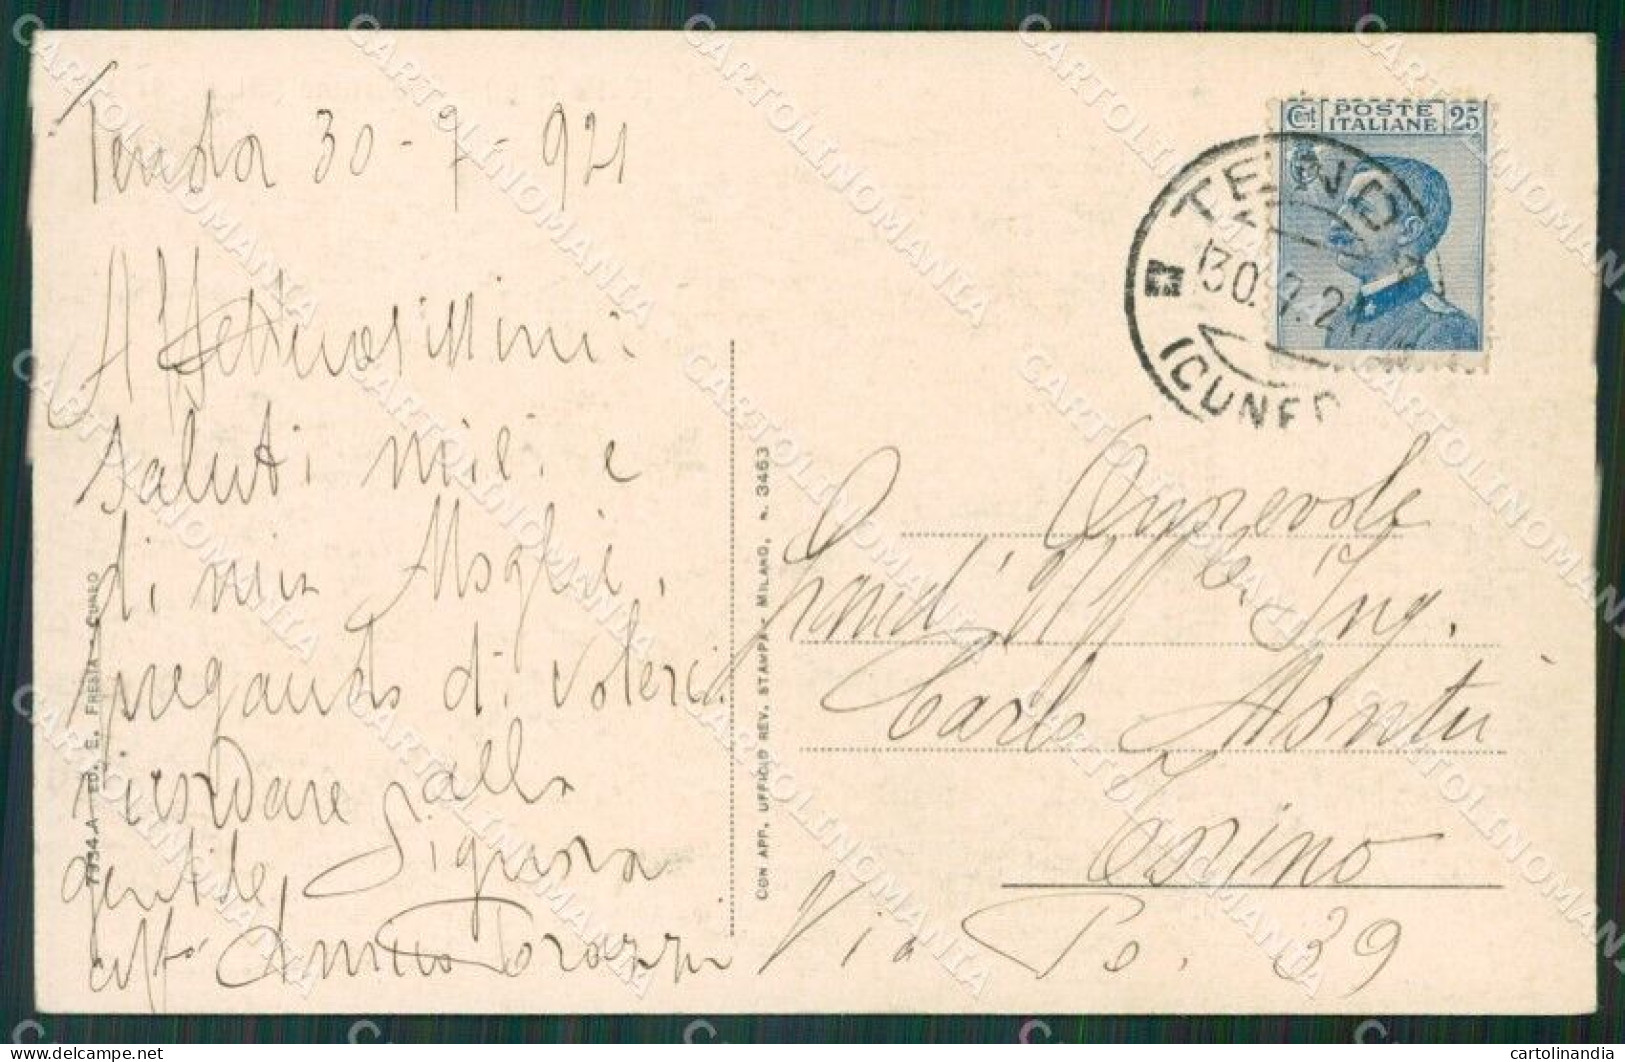 Tenda 30-7-921
Affettuosissimi
saluti miei e
di mia Moglie,
pregando di volerci
ricordare alla
gentile Signora
aff.mo Torazzi
7934-A - ED. E. FRESIA - CUNEO
CON APP. UFFICIO REV. STAMPA - MILANO, N. 3463
Cent. POSTE ITALIANE 25
TENDA
30.7.21
(CUNEO
Onorevole
Grand' Uff.le Ing.
Carlo
Torino
Via Po. 39
CARTOLINOMANIA
cartolinandia